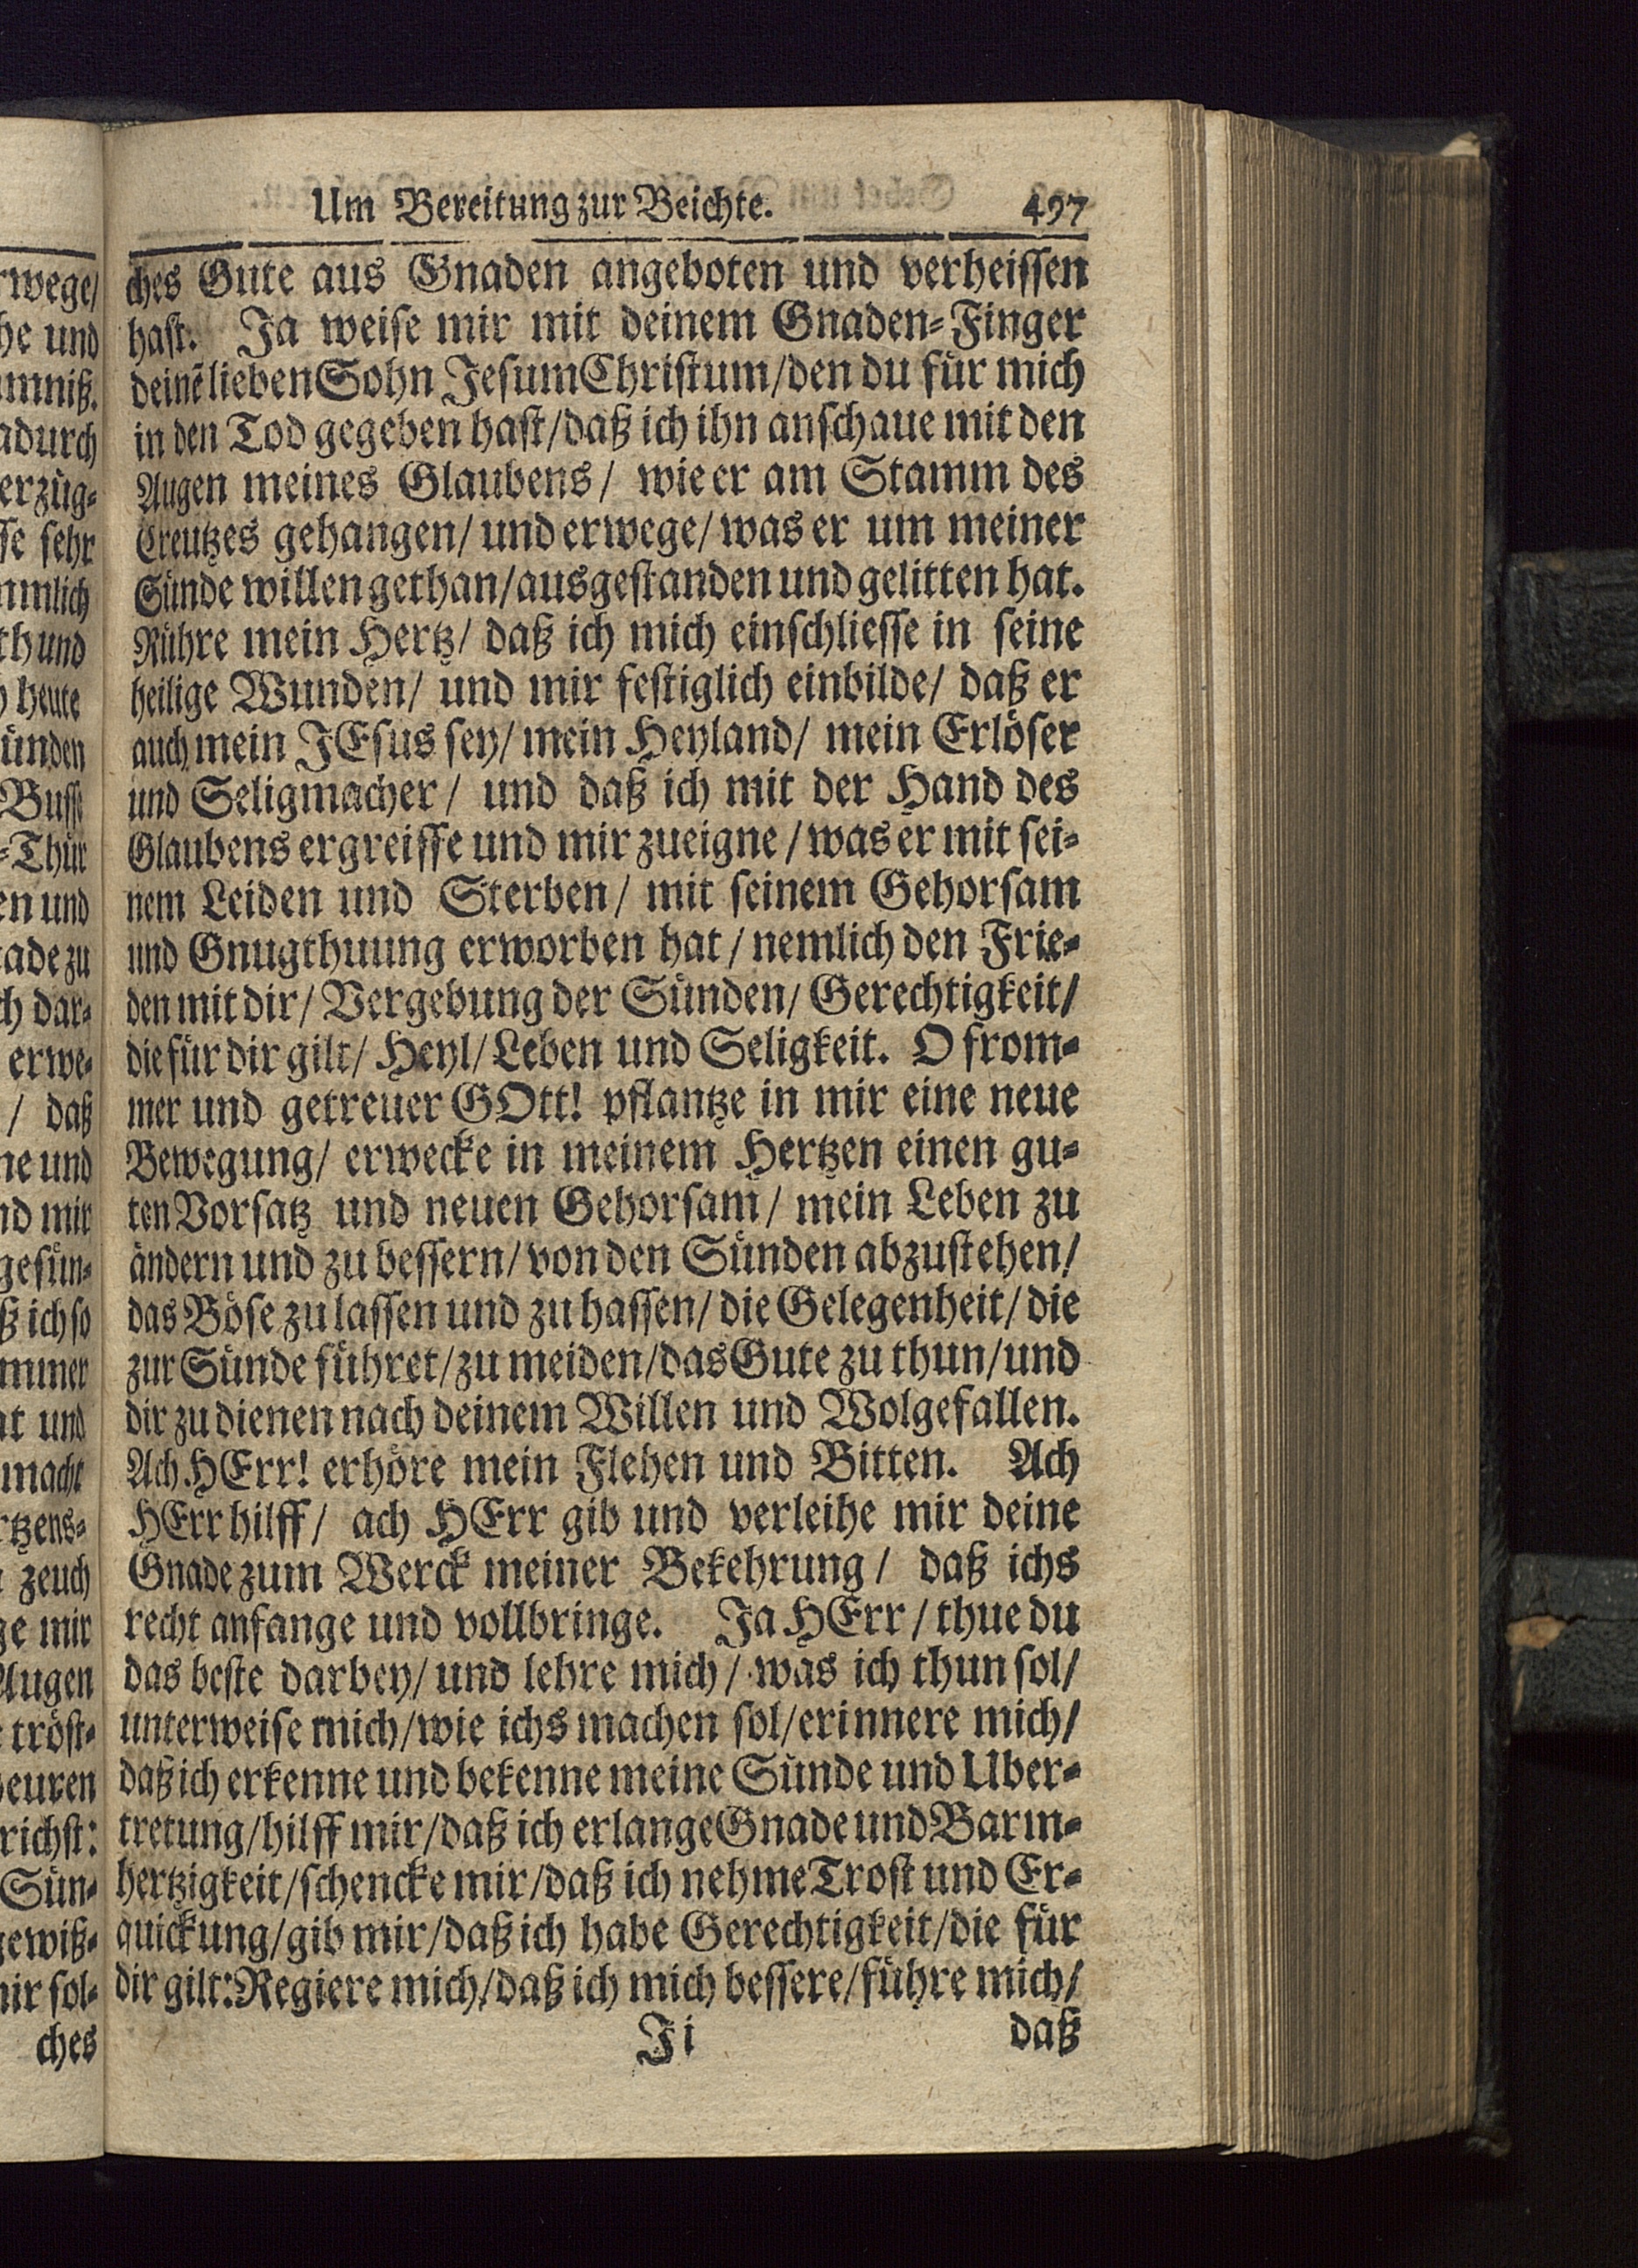 Um Bereitung zur Beichte. 497
ches Gute aus Gnaden angeboten und verheissen
hast. Ja weise mir mit deinem Gnaden-Finger
deinē lieben Sohn Jesum Christum/den du für mich
in den Tod gegeben hast/daß ich ihn anschaue mit den
Augen meines Glaubens/ wie er am Stamm des
Creutzes gehangen/ und erwege/ was er um meiner
Sünde willen gethan/ausgestanden und gelitten hat.
Rühre mein Hertz/ daß ich mich einschliesse in seine
heilige Wunden/ und mir festiglich einbilde/ daß er
auch mein JEsus sey/ mein Heyland/ mein Erlöser
und Seligmacher/ und daß ich mit der Hand des
Glaubens ergreiffe und mir zueigne/ was er mit sei-
nem Leiden und Sterben/ mit seinem Gehorsam
und Gnugthuung erworben hat/ nemlich den Frie-
den mit dir/ Vergebung der Sünden/ Gerechtigkeit/
die für dir gilt/ Heyl/ Leben und Seligkeit. O from-
mer und getreuer GOtt! pflantze in mir eine neue
Bewegung/ erwecke in meinem Hertzen einen gu-
ten Vorsatz und neuen Gehorsam/ mein Leben zu
ändern und zu bessern/ von den Sünden abzustehen/
das Böse zu lassen und zu hassen/ die Gelegenheit/ die
zur Sünde führet/ zu meiden/ das Gute zu thun/ und
dir zu dienen nach deinem Willen und Wolgefallen.
Ach HErr! erhöre mein Flehen und Bitten. Ach
HErr hilff/ ach HErr gib und verleihe mir deine
Gnade zum Werck meiner Bekehrung/ daß ichs
recht anfange und vollbringe. Ja HErr/ thue du
das beste darbey/ und lehre mich/ was ich thun sol/
unterweise mich/ wie ichs machen sol/ erinnere mich/
daß ich erkenne und bekenne meine Sünde und Uber-
tretung/ hilff mir/ daß ich erlange Gnade und Barm-
hertzigkeit/ schencke mir/ daß ich nehme Trost und Er-
quickung/ gib mir/ daß ich habe Gerechtigkeit/ die für
dir gilt: Regiere mich/ daß ich mich bessere/ führe mich/
Ji daß
rwege/
he und
mniß.
adurch
erzüg-
se sehr
mmlich
th und
heute
ünden
Busse
-Thür
en und
ade zu
ch dar-
erwe-
/ daß
ne und
nd mir
gesün-
ß ich so
mmer
at und
macht
rtzens-
zeuch
ge mir
Augen
tröst-
euren
richst:
Sün-
gewiß-
mir sol-
ches